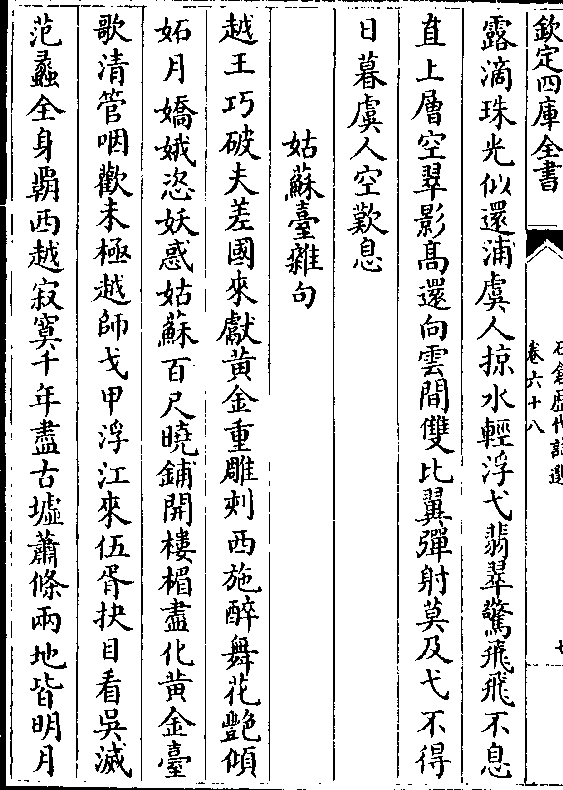 欽定四庫全書
卷六十八
露滴珠光似還浦虞人掠水輕浮弋翡翠驚飛飛不息
直上層空翠影高還向雲間雙比翼彈射莫及弋不得
日暮虞人空歎息
姑蘇臺雜句
越王巧破夫差國來獻黃金重雕刻西施醉舞花艷傾
妬月嬌娥恣妖惑姑蘇百尺曉鋪開樓楣盡化黃金臺
歌清管咽歡未極越師戈甲浮江來伍胥抉目看吳滅
范蠡全身霸西越寂寞千年盡古墟蕭條兩地皆明月